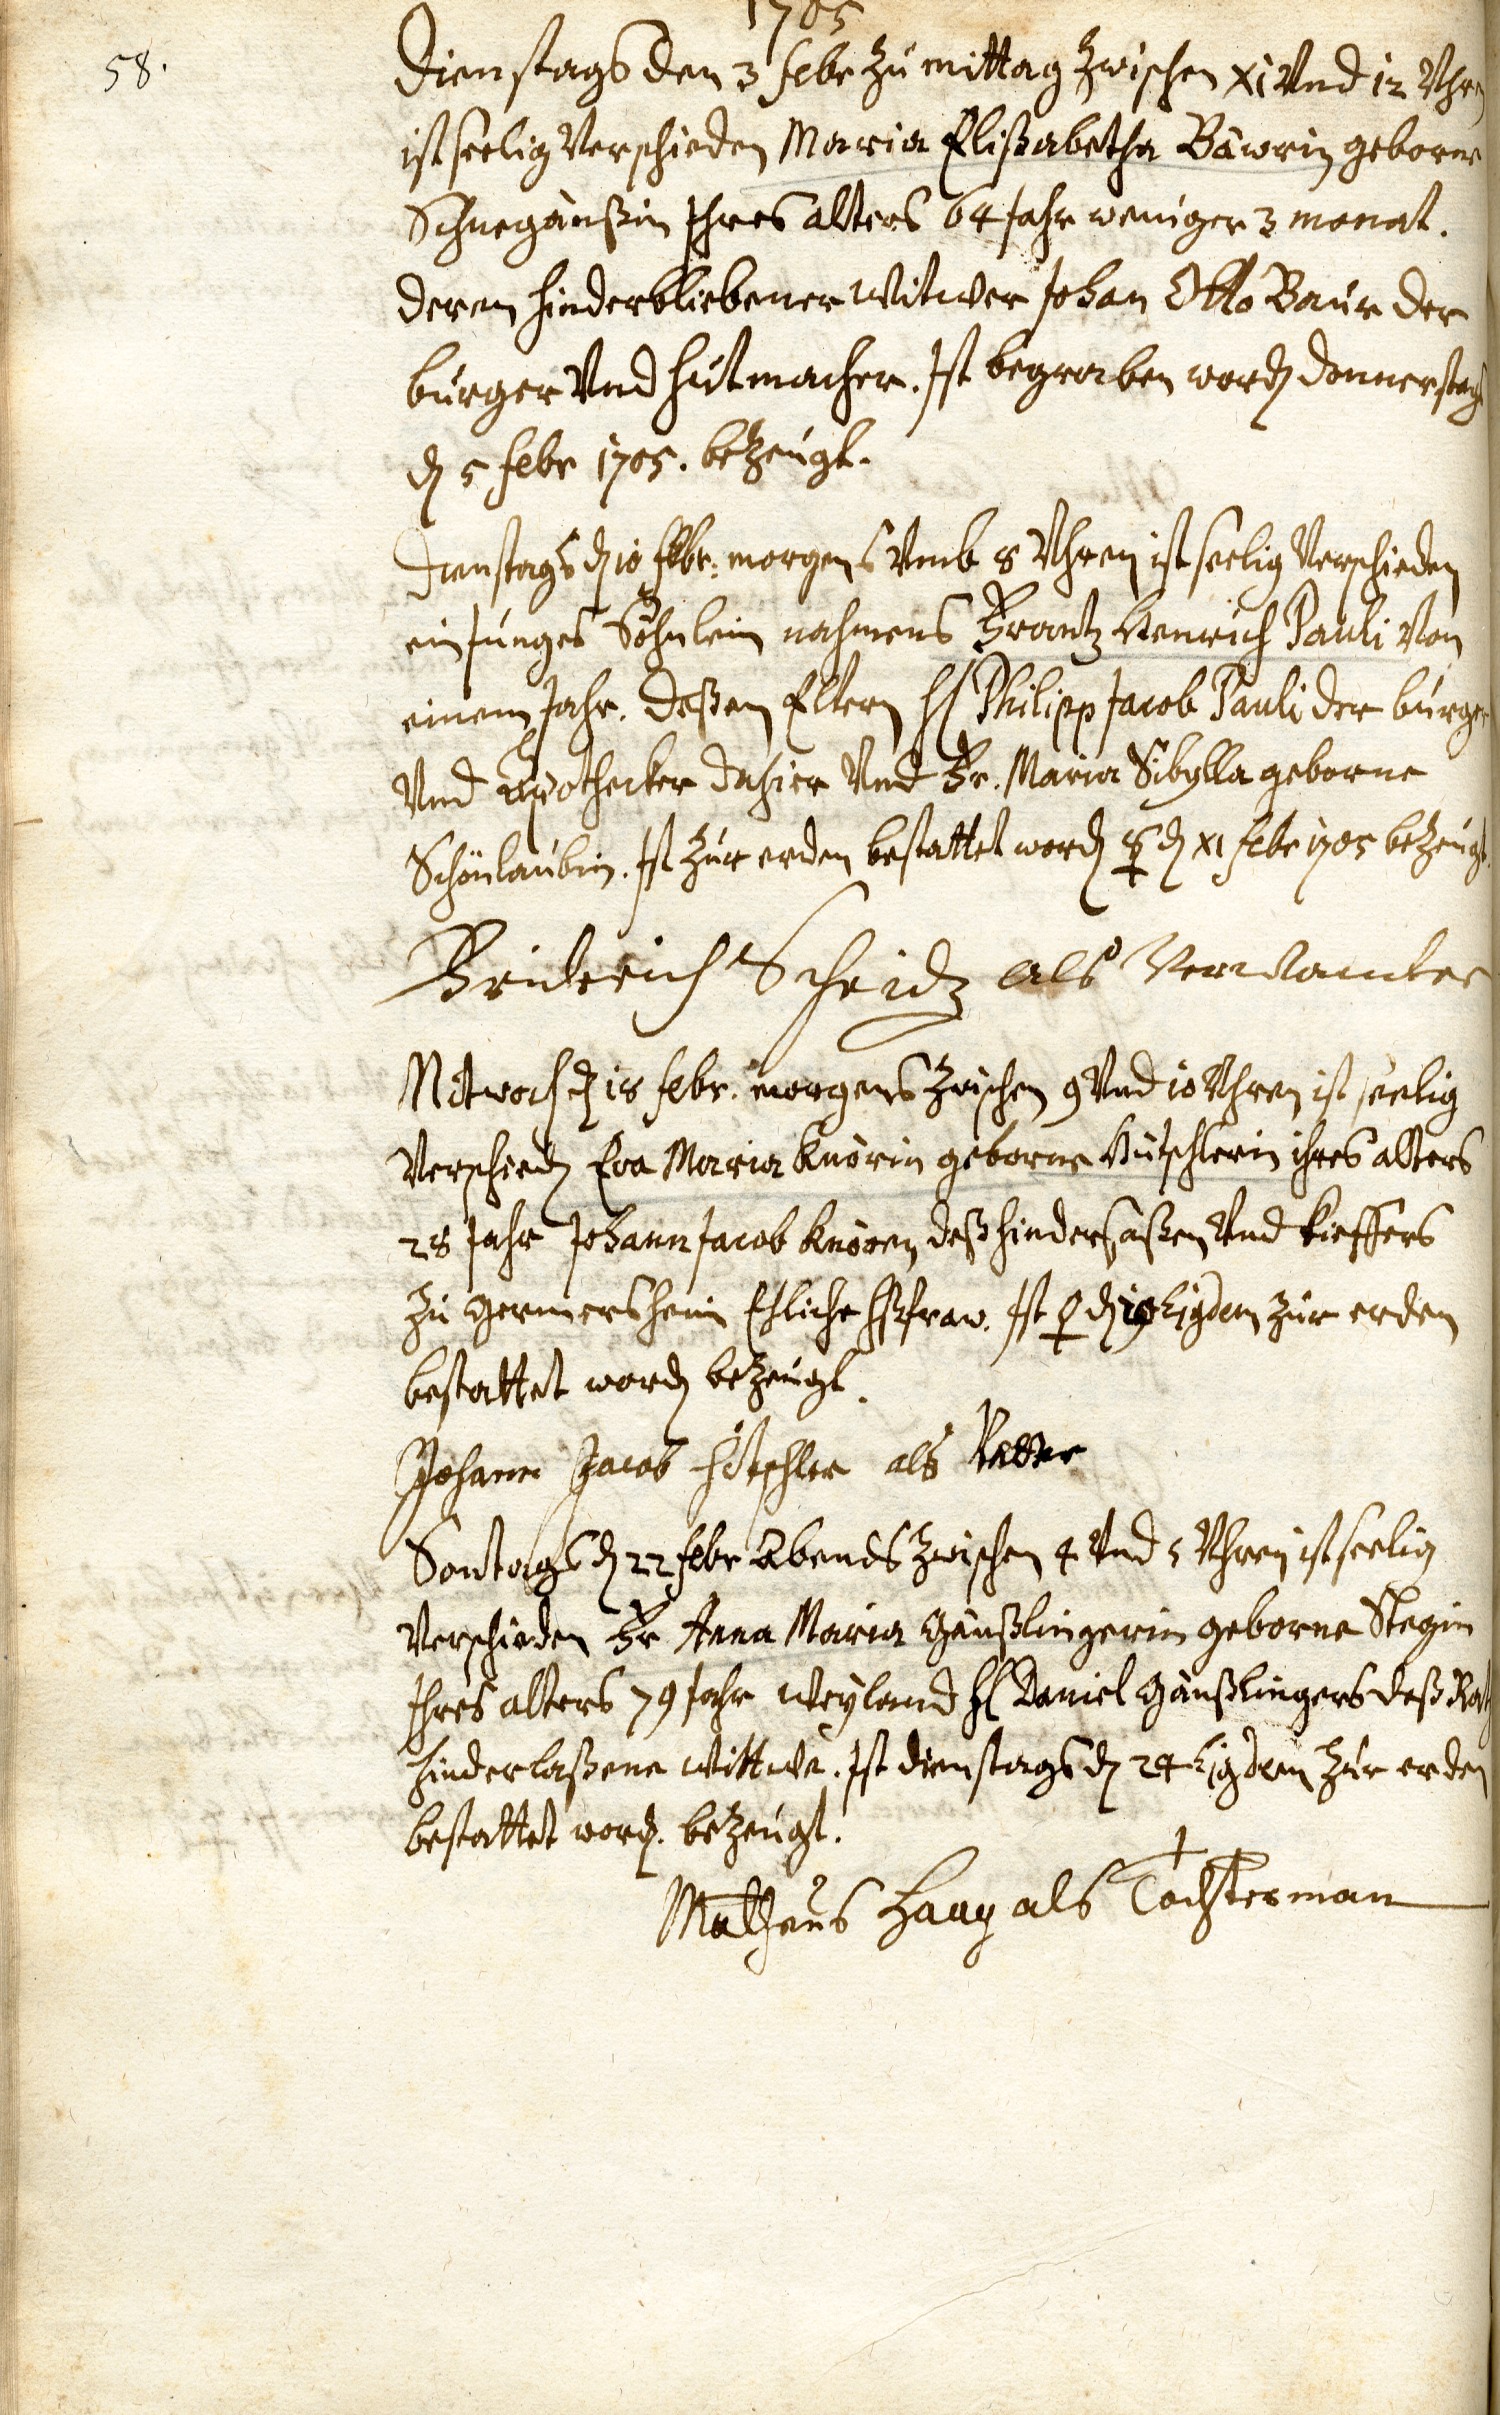 1705
58.
Dienstags den 3 febr zu mittag zwischen XI Vnd 12 Vhren
ist seelig Verschieden Maria Elißabetha Bäwrin geborne
Schnegänßin Ihres alters 64 Jahr weniger 3 monat.
deren hinderbliebener Witwer Johan Otto Baur der
burger Vnd hutmacher. Ist begraben word donnerstags
d 5 febr 1705. bezeugt.
Dienstags d 10 febr: morgens Vmb 8 Vhren ist seelig Verschieden
ein Junges Söhnlein nahmens Frantz Henrich Pauli Von
einem Jahr. deßen Eltern H Philipp Jacob Pauli der burger
Vnd Apothecker dahier Vnd Fr. Maria Sibylla geborne
Schönlaubin. Ist zur erden bestattet word ☿ d XI febr 1705 bezeugt.
Friderich Scheidz als Verwanter
Mitwoch d 18 febr. morgens zwischen 9 Vnd 10 Vhren ist seelig
Verschied Eva Maria Knörin geborne Hütschlerin ihres alters
28 Jahr Johann Jacob Knören deß hindersaßen Vnd kieffers
zu Germersheim Ehliche hßfraw. Ist d 19 zur erden
bestattet word bezeugt.
Johann Jacob Hötschler als Vatter
Sontags d 22 febr Abends zwischen 4 Vnd 5 Vhren ist seelig
Verschieden Fr Anna Maria Gänßlingerin geborne Stegin
Ihres alters 79 Jahr Weyland H Daniel Gänßlingers deß Raths
hinderlaßene Wittwe. Ist dienstags d 24 zur erden
bestattet word. bezeugt.
Matheus Haag als Tochterman